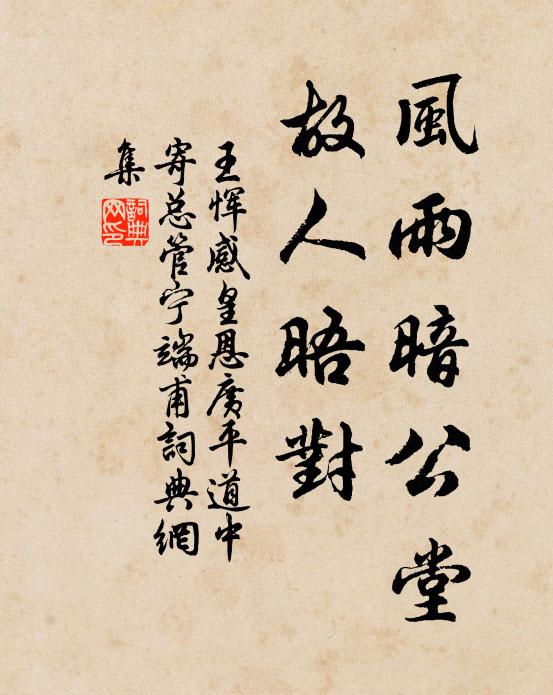 風雨暗公堂
故人晤對
王惲感皇恩廣平道中
寄总管宁端甫詞典網
集
詞典
网印